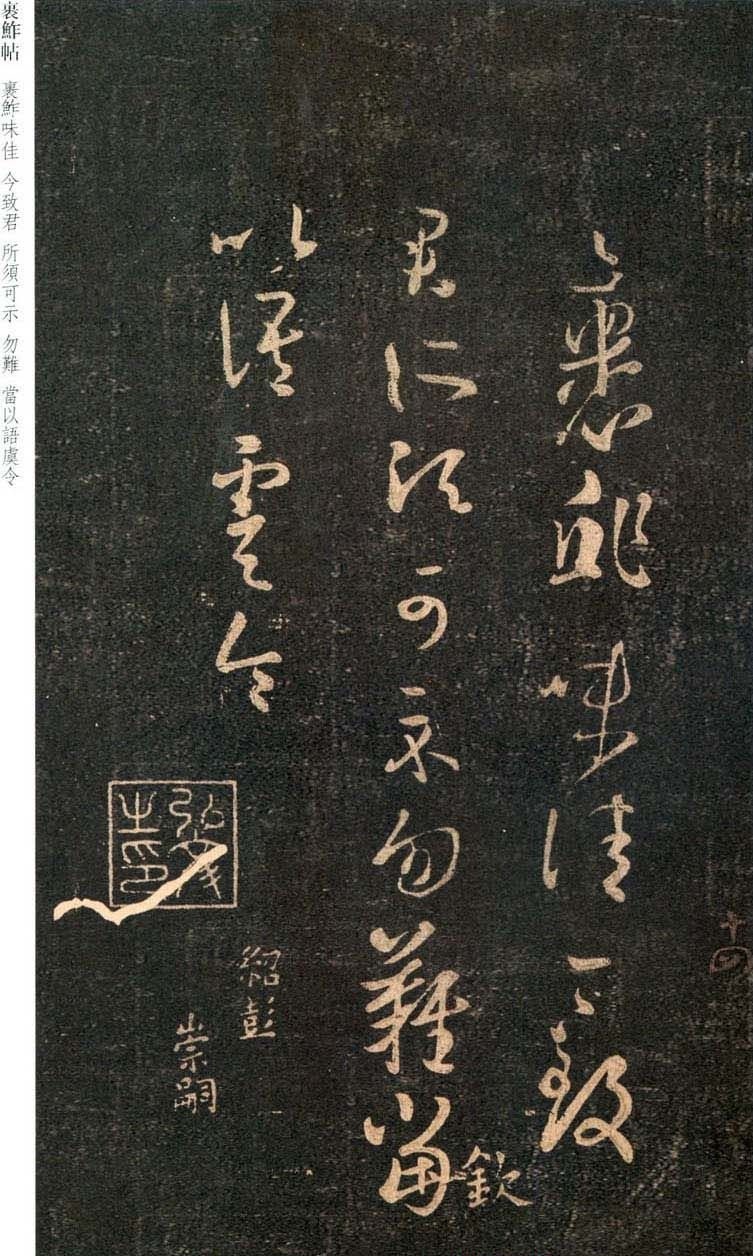 裹鮓味佳今致
君所須可示勿難當
以語虞令
欽
紹彭
崇嗣
十四
裹鮓帖 裹鮓味佳 今致君 所須可示 勿難 當以語虞令